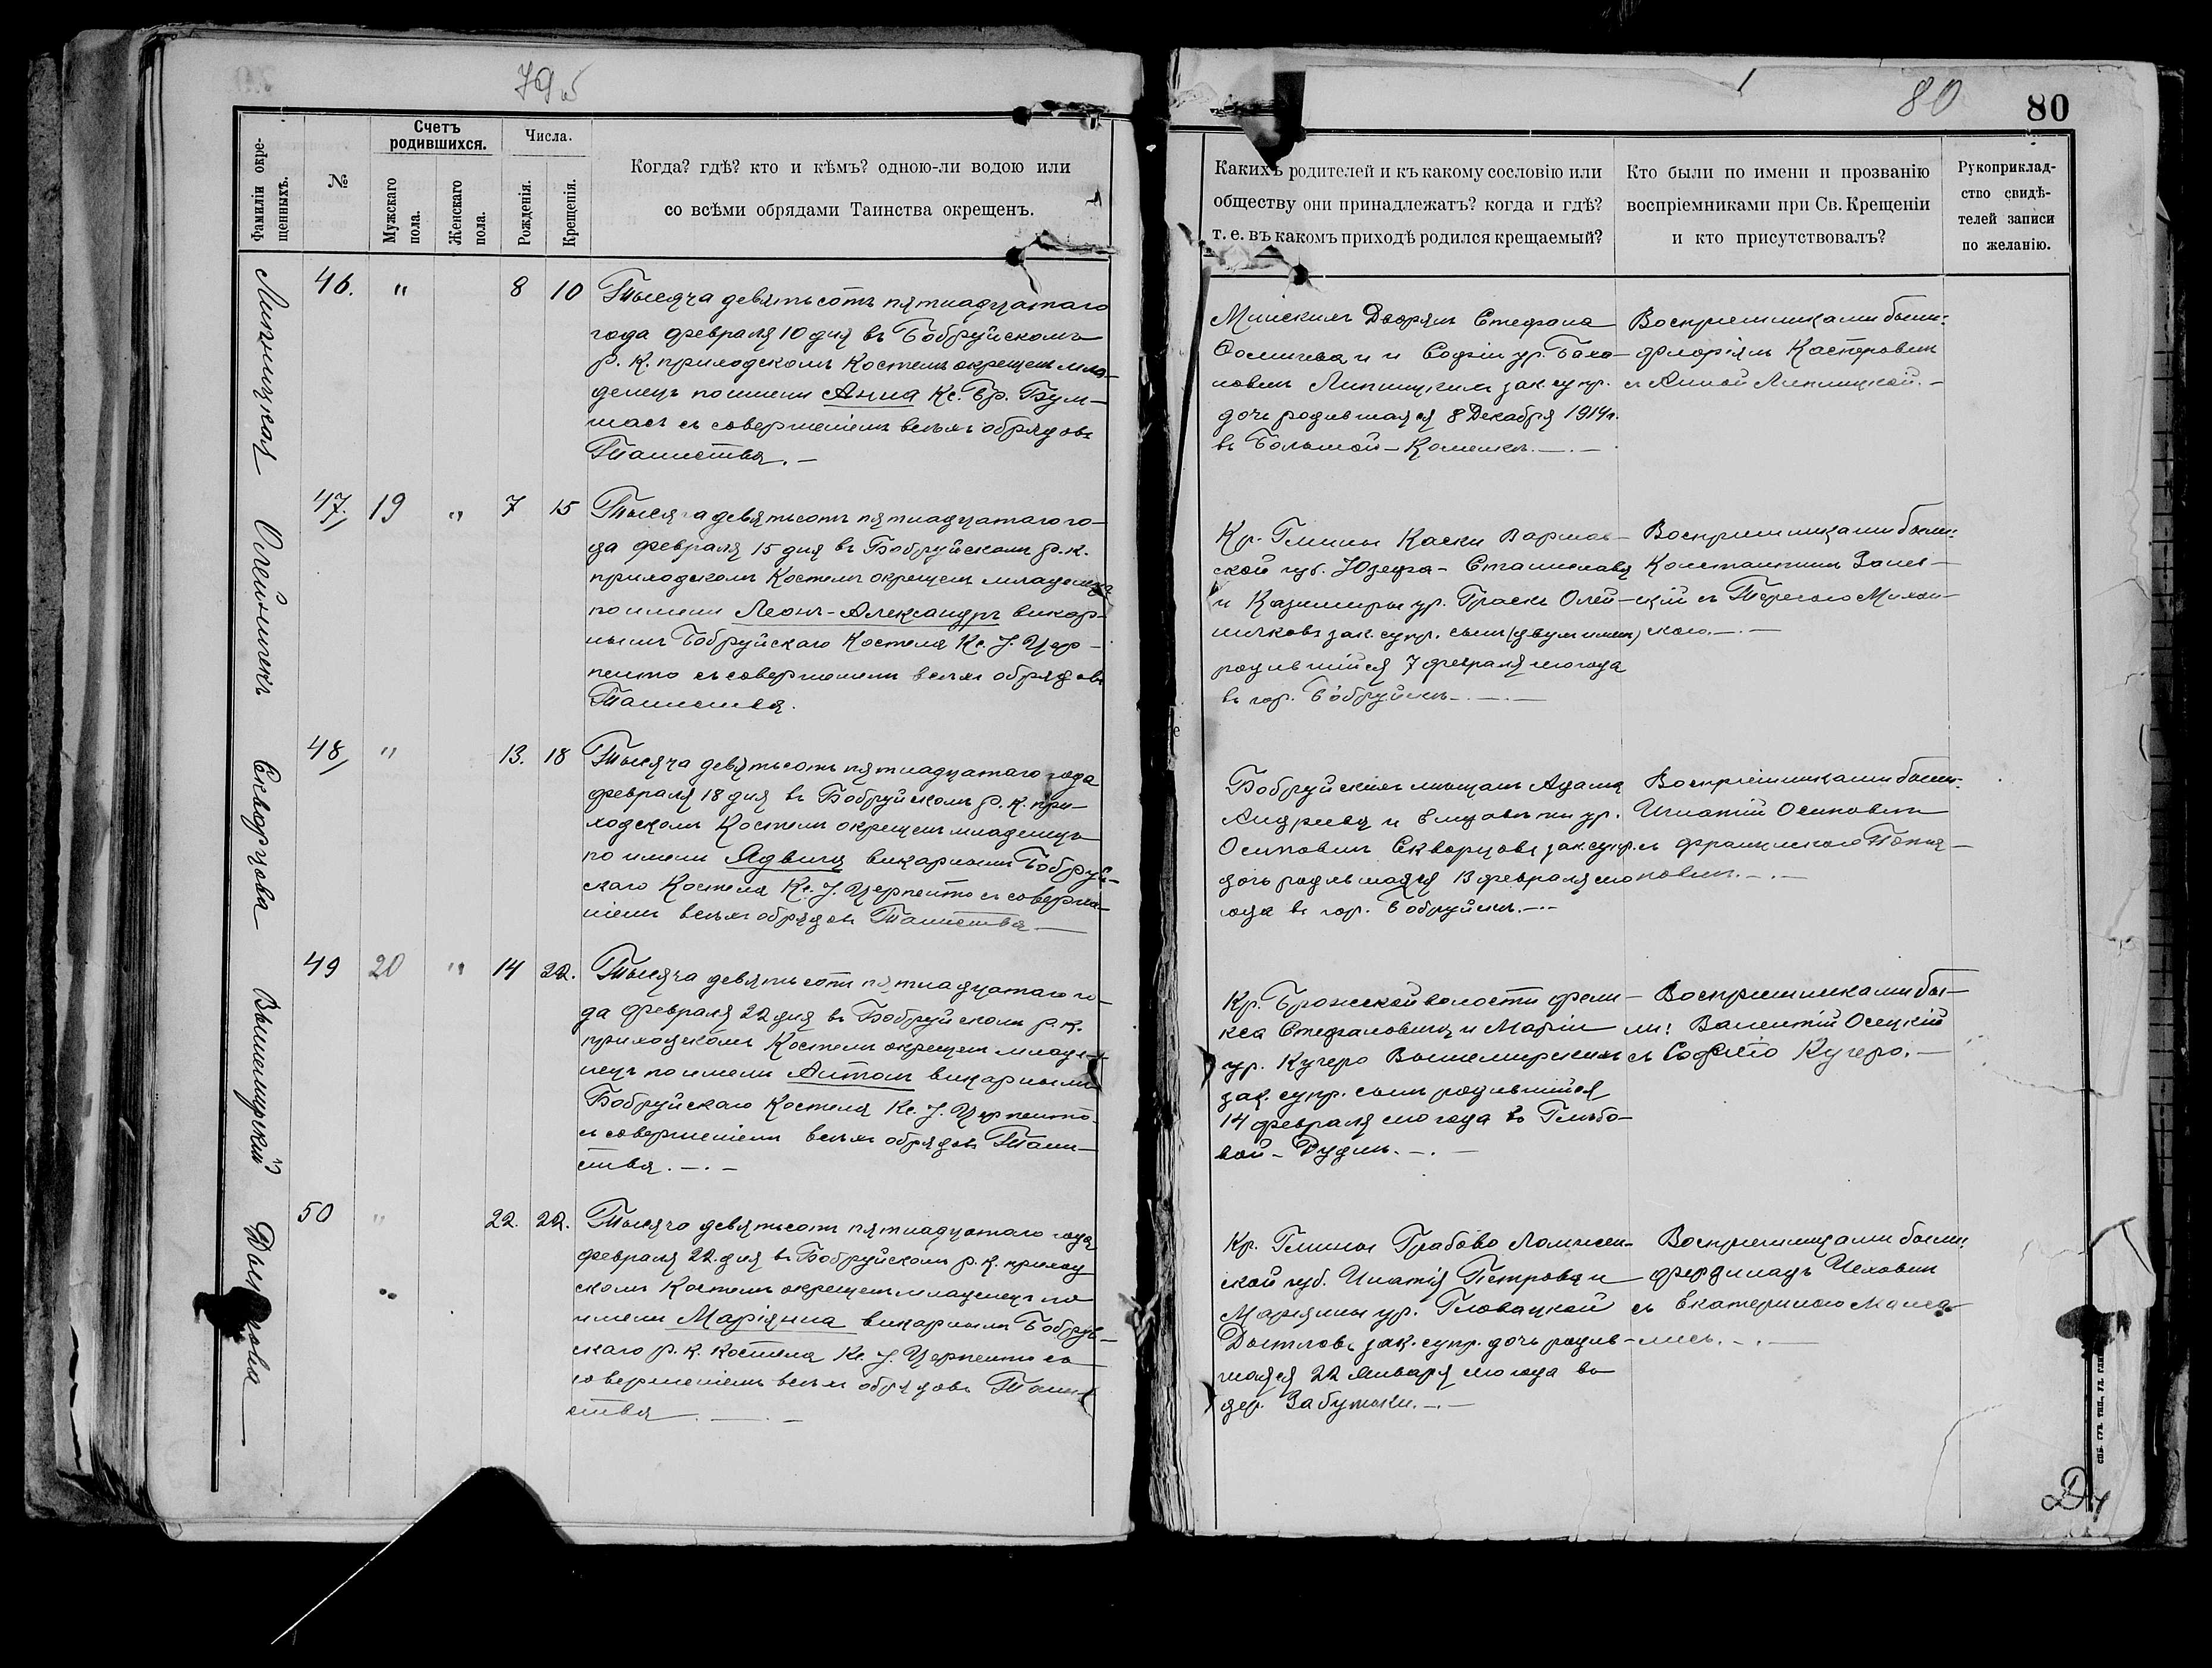 79 об
Фамиліи окре-
щенныхъ.
№
Счетъ
родившихся.
Мужскаго
пола.
Женскаго
пола.
Числа.
Рожденія.
Крещенія.
Когда? гдѣ? кто и кѣмъ? одною-ли водою или
со всѣми обрядами Таинства окрещенъ.
Липницкая
46.
"
8
10
Тысяча девятьсотъ пятнадцатаго
года февраля 10 дня въ Бобруйскомъ
р. К. приходскомъ Костелѣ окрещенъ мла-
денецъ по имени Анна Кс. Бр. Бум-
шасъ съ совершеніемъ всѣхъ обрядовъ
Таинства. –
Олейничекъ
47.
19
"
7
15
Тысяча девятьсотъ пятнадцатаго го-
да февраля 15 дня въ Бобруйскомъ р. к.
приходскомъ Костелѣ окрещенъ младенецъ
по имени Леонъ-Александръ викар-
нымъ Бобруйскаго Костела Кс. І. Цер-
пенто съ совершеніемъ всѣхъ обрядовъ
Таинства.
Скворцова
48
"
13.
18
Тысяча девятьсотъ пятнадцатаго года
февраля 18 дня въ Бобруйскомъ р. К. при-
ходскомъ Костелѣ окрещенъ младенецъ
по имени Ядвига викарнымъ Бобруй-
скаго Костела Кс. І. Церпенто съ соверше-
ніемъ всѣхъ обрядовъ Таинства –
Вышемирскій
49
20
"
14
22.
Тысяча девятьсотъ пятнадцатаго го-
да февраля 22 дня въ Бобруйскомъ р. к.
приходскомъ Костелѣ окрещенъ младе-
нецъ по имени Антонъ викарнымъ
Бобруйскаго Костела Кс. І. Церпенто
съ совершеніемъ всѣхъ обрядовъ Таин-
ства. –.–
50
"
22.
22.
Тысяча девятьсотъ пятнадцатаго года
февраля 22 дня въ Бобруйскомъ р. к. приход
скомъ Костелѣ окрещенъ младенецъ по
имени Маріянна викарнымъ Бобруй-
скаго р. к. Костела Кс. І. Церпенто съ
совершеніемъ всѣхъ обрядовъ Таин-
ства –.–
80
80
Какихъ родителей и къ какому сословію или
обществу они принадлежатъ? когда и гдѣ?
т. е. въ какомъ приходѣ родился крещаемый?
Кто были по имени и прозванію
воспріемниками при Св. Крещеніи
и кто присутствовалъ?
Рукоприклад-
ство свидѣ-
телей записи
по желанію.
Минскихъ Дворянъ Стефана
и Софіи ур. Бахо-
новичъ Липницкихъ зак. супр.
дочь родившаяся 8 Декабря 1914 г.
въ Большой-Каменкѣ.–.–
Воспріемниками были:
Флоріянъ Касперовичъ
съ Анной Липницкой.–
Кр. Гмины Каски Варшав-
ской губ. Юзефа-Станислава
и Казимиры ур. Олей-
ничковъ зак. супр. сынъ (двухъ именъ)
родившійся 7 февраля сего года
въ гор. Бобруйскѣ.–.–
Воспріемниками были:
Константинъ
съ Терезою
Бобруйскихъ мѣщанъ Адама
Андреева и Елизаветы ур.
Осиповичъ Скворцовъ зак. супр.
дочь родившаяся 13 февраля сего
года въ гор. Бобруйскѣ.–.–
Воспріемниками были:
Игнатій Осиповичъ
Кр. Брожской волости Фели-
кса Стефановича и Маріи
ур. Кучеро Вышемирскихъ
зак. супр. сынъ родившійся
14 февраля сего года въ Глѣбо-
вой-Рудни.–.–
Воспріемниками бы-
ли: Валентій Осецкій
съ Софіею Кучеро.–
Кр. Гмины Грабово Ломжин-
ской губ. Игнатія Петрова и
Маріянны ур. Гловацкой
зак. супр. дочь родив-
шаяся 22 Января сего года въ
дер. Забудьки.–.–
Воспріемниками были:
Фердинадъ Чеховичъ
съ Екатериною